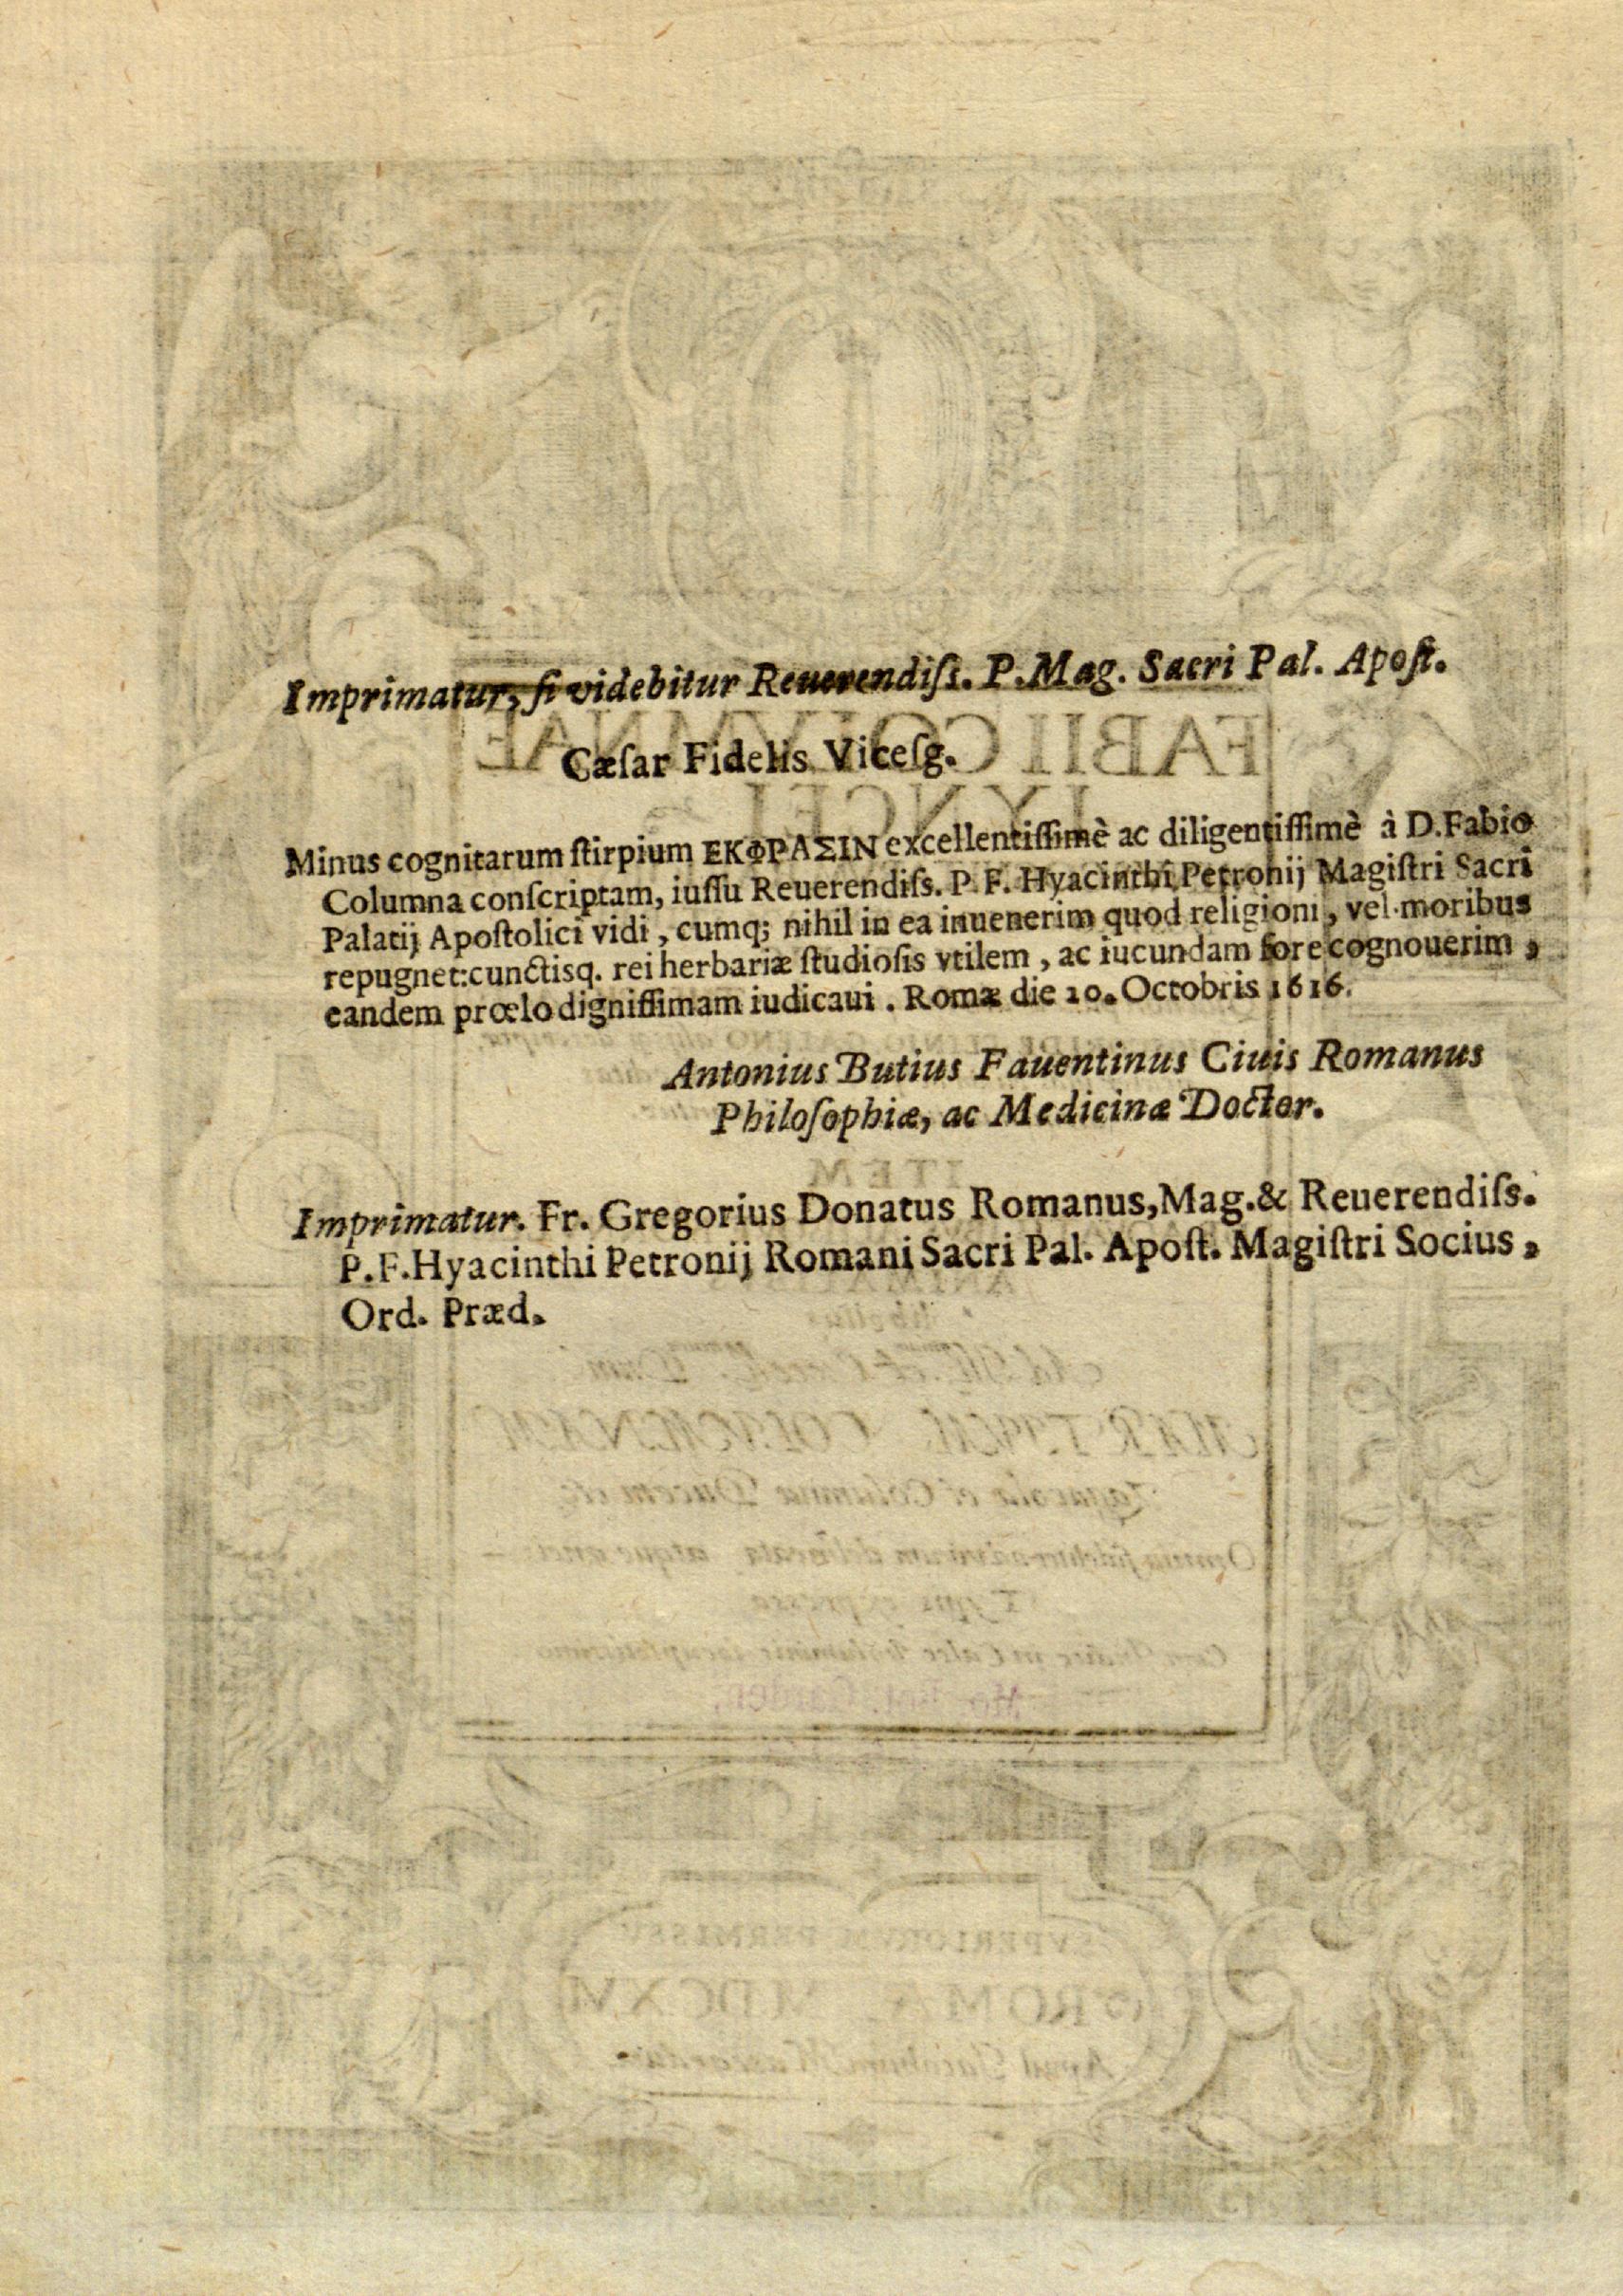 Imprimatur, ſi videbitur Reuerendiſs. P. Mag. Sacri Pal. Apoſt.
Cæſar Fidelis Viceſg.
Minus cognitarum ſtirpium ΕΚΦΡΑΣΙΝ excellentiſſimè ac diligentiſſimè à D. Fabio
Columna conſcriptam, iuſſu Reuerendiſs. P. F. Hyacinthi Petronij Magiſtri Sacri
Palatij Apoſtolici vidi, cumq; nihil in ea inuenerim quod religioni, vel moribus
repugnet: cunctisq. rei herbariæ ſtudioſis vtilem, ac iucundam fore cognouerim,
eandem prœlo digniſſimam iudicaui. Romæ die 10. Octobris 1616.
Antonius Butius Fauentinus Ciuis Romanus
Philoſophiæ, ac Medicinæ Doctor.
Imprimatur. Fr. Gregorius Donatus Romanus, Mag. & Reuerendiſs.
P. F. Hyacinthi Petronij Romani Sacri Pal. Apoſt. Magiſtri Socius,
Ord. Præd.